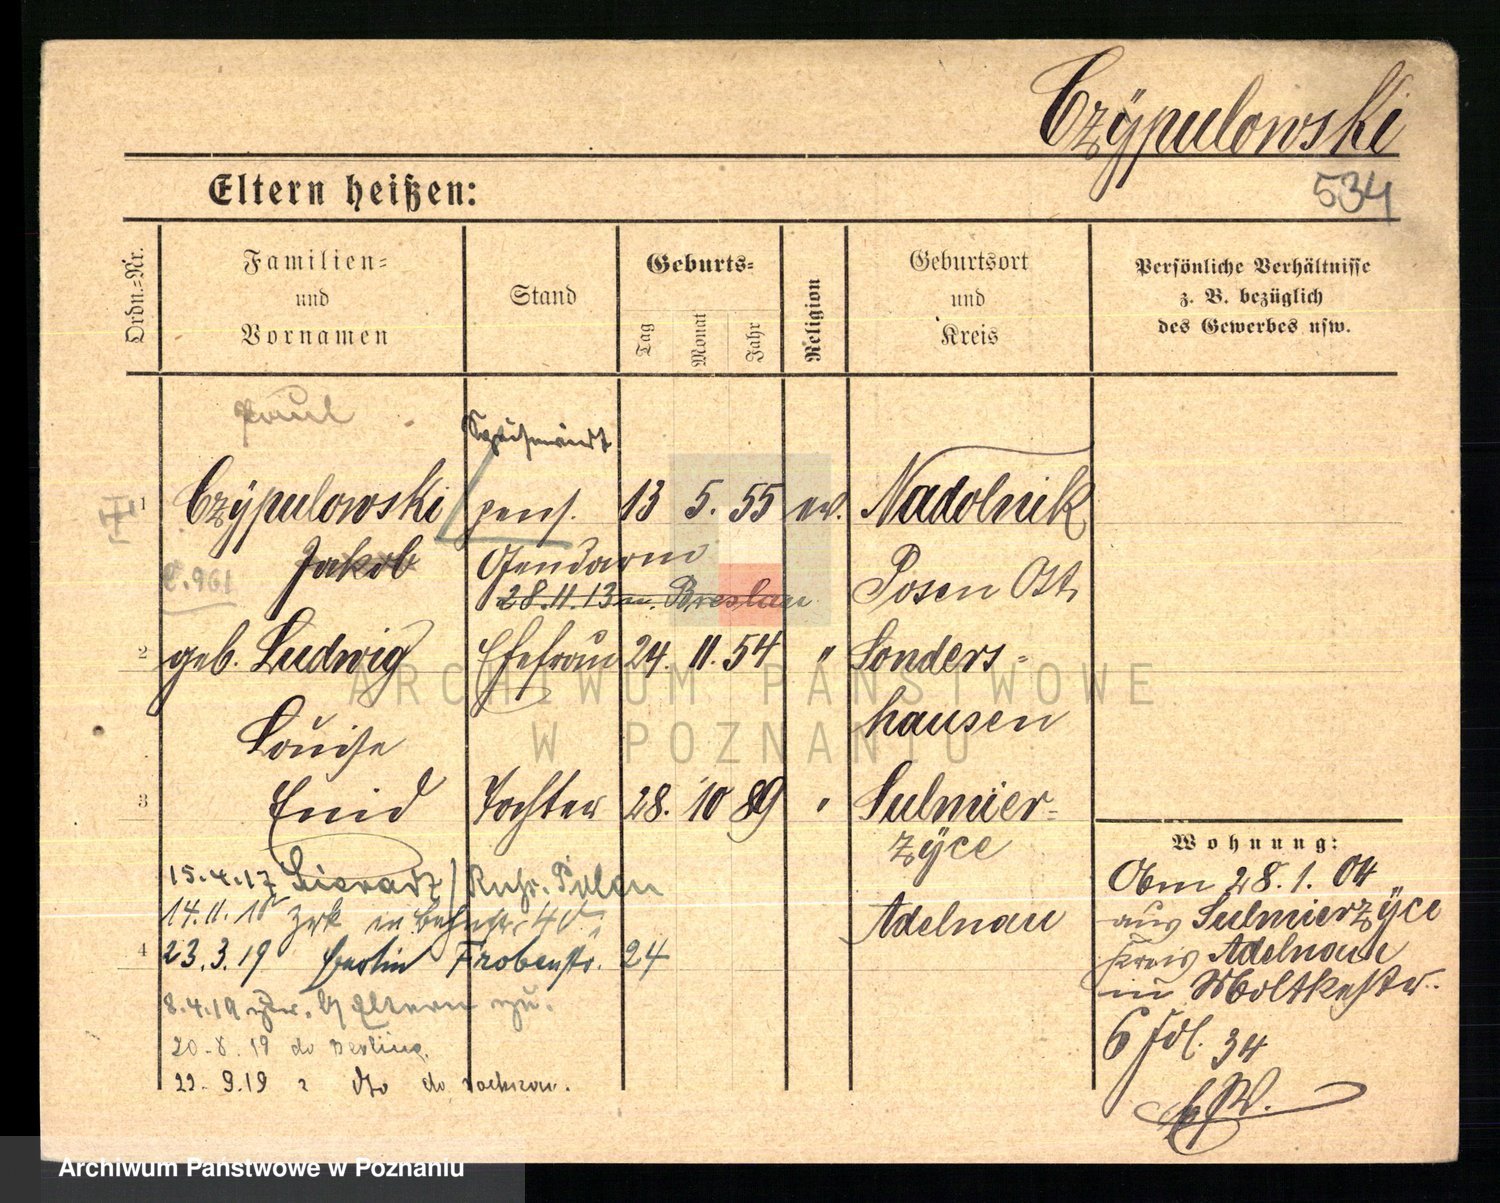 Czÿpulowski
534
Eltern heißen:
Ordn.-Nr.
Familien-
und
Vornamen
Stand
Geburts-
Tag
Monat
Jahr
Religion
Geburtsort
und
Kreis
Persönliche Verhältnisse
z. B. bezüglich
des Gewerbes usw.
Paul
Speisewirt
1 Czÿpulowski pens. 13 5. 55 ev. Nadolnik
Jakob Gendarm Posen Ost
C.961
28.11.13 n. Breslau
2 geb. Ludwig Ehefrau 24. 11. 54 " Sonders-
Louise hausen
3 Enid Tochter 28. 10 89 " Sulmier-
zÿce
Adelnau
15.4.17
14.11.18 zrk
4 23.3.19 Berlin Frobenstr. 24
8.4.19 Eltern zu.
20.8.19 do Berlin
22.9.19 do
Wohnung:
Obm 28.1.04
aus Sulmierzÿce
Kreis Adelnau
in Moltkestr.
6 Fdl. 34
ARCHIWUM PAŃSTWOWE
W POZNANIU
Archiwum Państwowe w Poznaniu